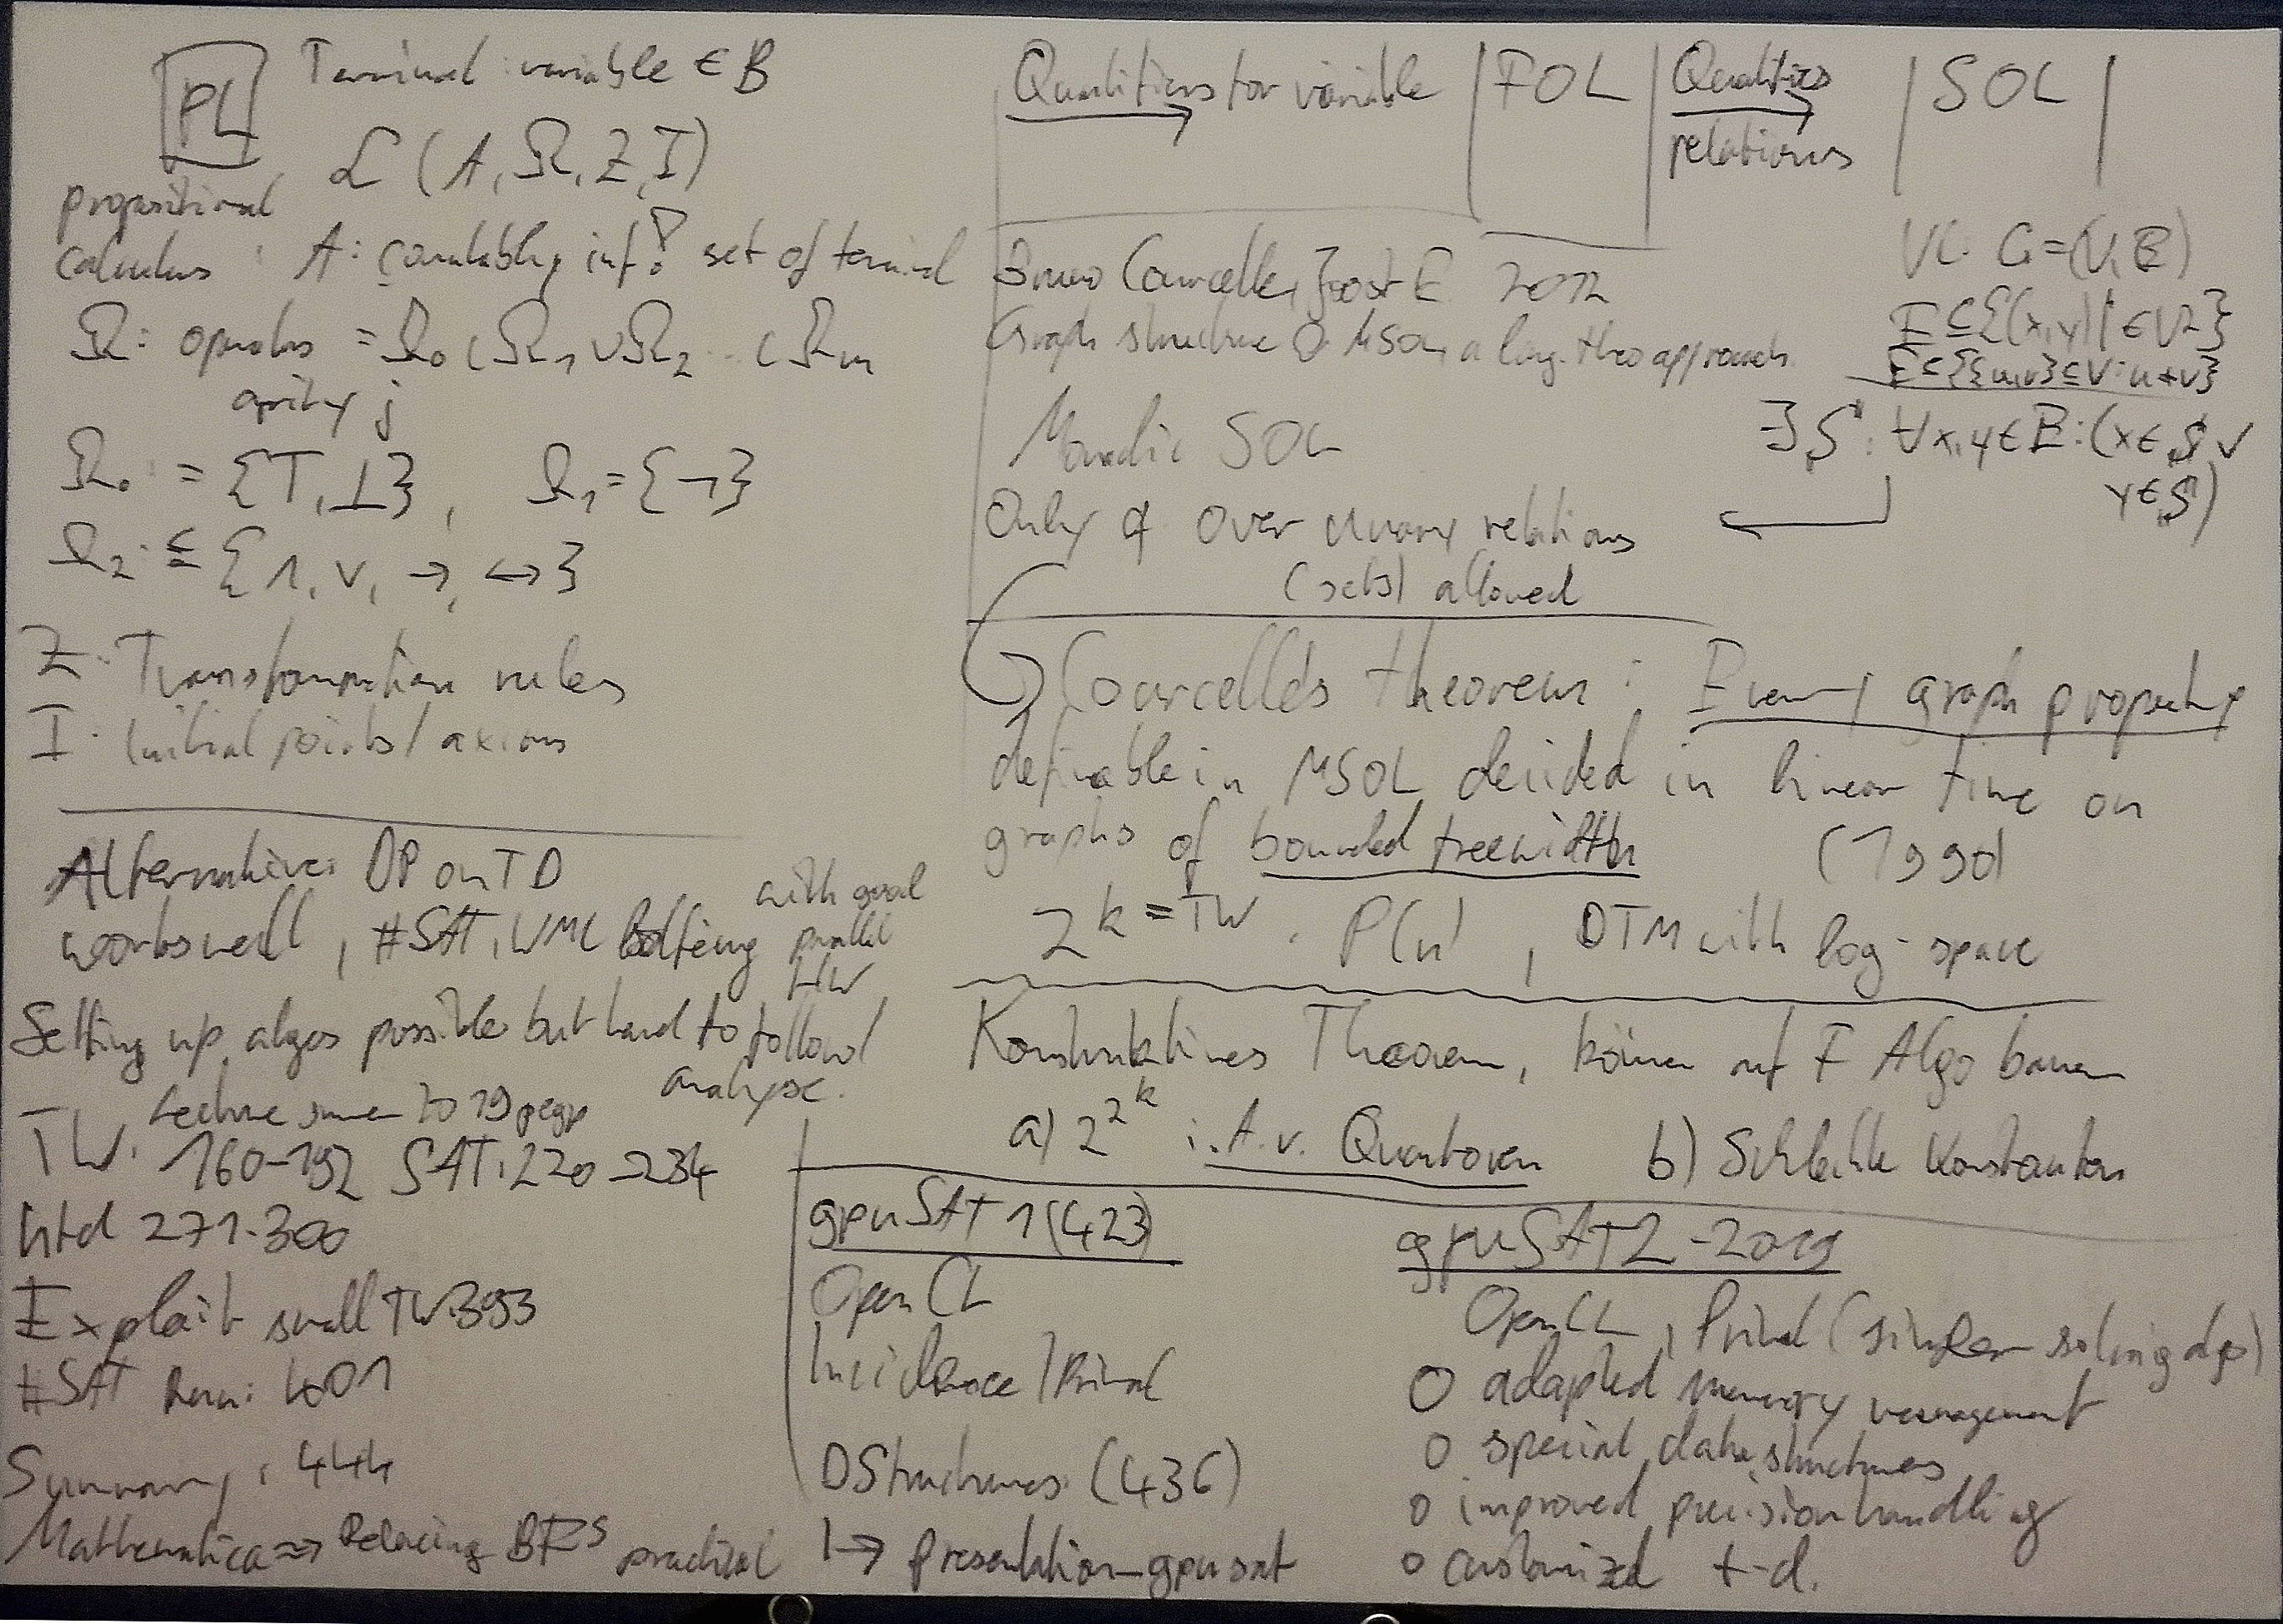 PL
Terminal variable ∈ B
L (A, Ω, Z, I)
propositional
calculus : A: countably inf! set of terminal
Ω: = Ω₀ ∪ Ω₁ ∪ Ω₂ .. ∪ Ωm
arity j
Ω₀ := {T, ⊥}, Ω₁ = {¬}
Ω₂: ⊆ {∧, ∨, →, ↔}
Z: Transformation rules
I: Initial points / axioms
Alternative: DP on TD
works well, #SAT, WMC with good parallel HW
Setting up algos possible but hard to follow/
analyse.
TW: 160-192 SAT: 220→234
htd 271-300
Exploit small TW: 393
#SAT 401
Summary: 444
Mathematica ⇒ BFS practical
for variable | FOL | | SOL |
relations
Bruno Courcelle, E. 2012
Graph structure & MSO, a approach
VC: G=(V,E)
E⊆{(x,y)|∈V²}
E⊆{{u,v}⊆V: u≠v}
∃S: ∀x,y∈E: (x∈S ∨
y∈S)
Monadic SOL
Only over unary relations
(sets) allowed
Courcelle's theorem: Every graph property
definable in MSOL decided in linear time on
graphs of bounded treewidth (1990)
2^k=TW · P(n), DTM with log-space
Konstruktives Theorem, können auf F Algo bauen
a) 2^2^k i.A.v. Quantoren b) Schlechte Konstanten
gpuSAT1 (423)
OpenCL
Incidence / Primal
DStructures: (436)
↦ presentation_gpusat
gpuSAT2 - 2019
OpenCL, Primal (simpler solving dp)
o adapted memory management
o special data structures
o improved precision handling
o customized t-d.